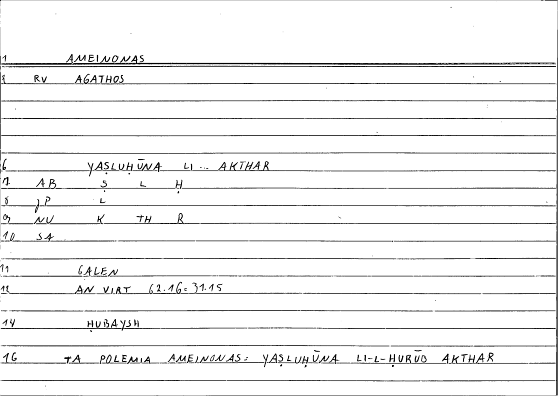 1 AMEINONAS
8 RV AGATHOS
6 YAṢLUḤŪNA LI... AKTHAR
7 AB Ṣ L Ḥ
8 JP L
9 NU K TH R
10 SA
11 GALEN
12 AN VIRT 62.16=31.15
14 ḤUBAYSH
16 TA POLEMIA AMEINONAS: YAṢLUḤŪNA LI-L-ḤURŪB AKTHAR